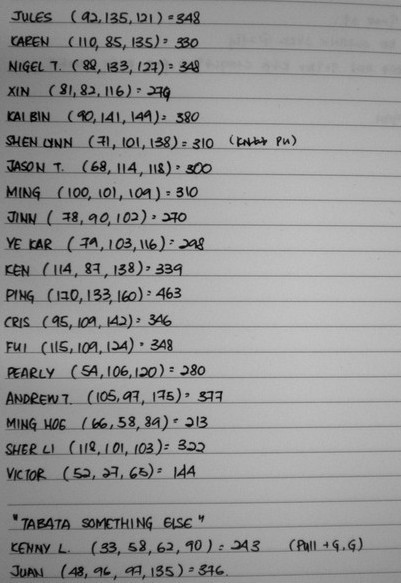 JULES (92, 135, 121) = 348
KAREN (110, 85, 135) = 330
NIGEL T. (88, 133, 127) = 348
XIN (81, 82, 116) = 279
KAI BIN (90, 141, 149) = 380
SHEN LYNN (71, 101, 138) = 310 (PU)
JASON T. (68, 114, 118) = 300
MING (100, 101, 109) = 310
JINN (78, 90, 102) = 270
YE KAR (79, 103, 116) = 298
KEN (114, 87, 138) = 339
PING (170, 133, 160) = 463
CRIS (95, 109, 142) = 346
FUI (115, 109, 124) = 348
PEARLY (54, 106, 120) = 280
ANDREW T. (105, 97, 175) = 377
MING HOE (66, 58, 89) = 213
SHER LI (118, 101, 103) = 322
VICTOR (52, 27, 65) = 144
"TABATA SOMETHING ELSE"
KENNY L. (33, 58, 62, 90) = 243 (Pull + G.G)
JUAN (48, 96, 97, 135) = 376.